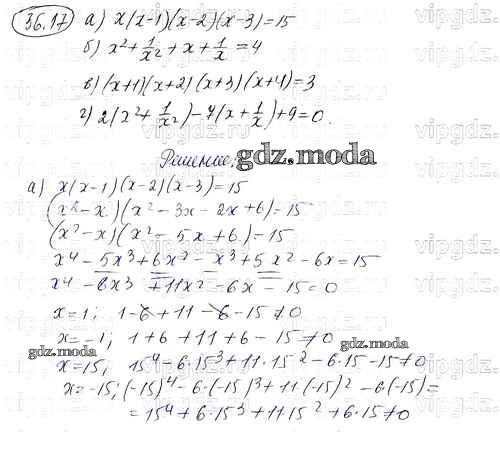 36.17 а) x(x-1)(x-2)(x-3)=15
б) x²+1/x²+x+1/x=4
в) (x+1)(x+2)(x+3)(x+4)=3
г) 2(x²+1/x²)-7(x+1/x)+9=0.
Решение:
gdz.moda
а) x(x-1)(x-2)(x-3)=15
(x²-x)(x²-3x-2x+6)=15
(x²-x)(x²-5x+6)=15
x⁴-5x³+6x²-x³+5x²-6x=15
x⁴-6x³+11x²-6x-15=0
x=1; 1-6+11-6-15≠0
x=-1; 1+6+11+6-15≠0
gdz.moda
gdz.moda
x=15; 15⁴-6·15³+11·15²-6·15-15≠0
x=-15; (-15)⁴-6·(-15)³+11·(-15)²-6·(-15)=
=15⁴+6·15³+11·15²+6·15≠0